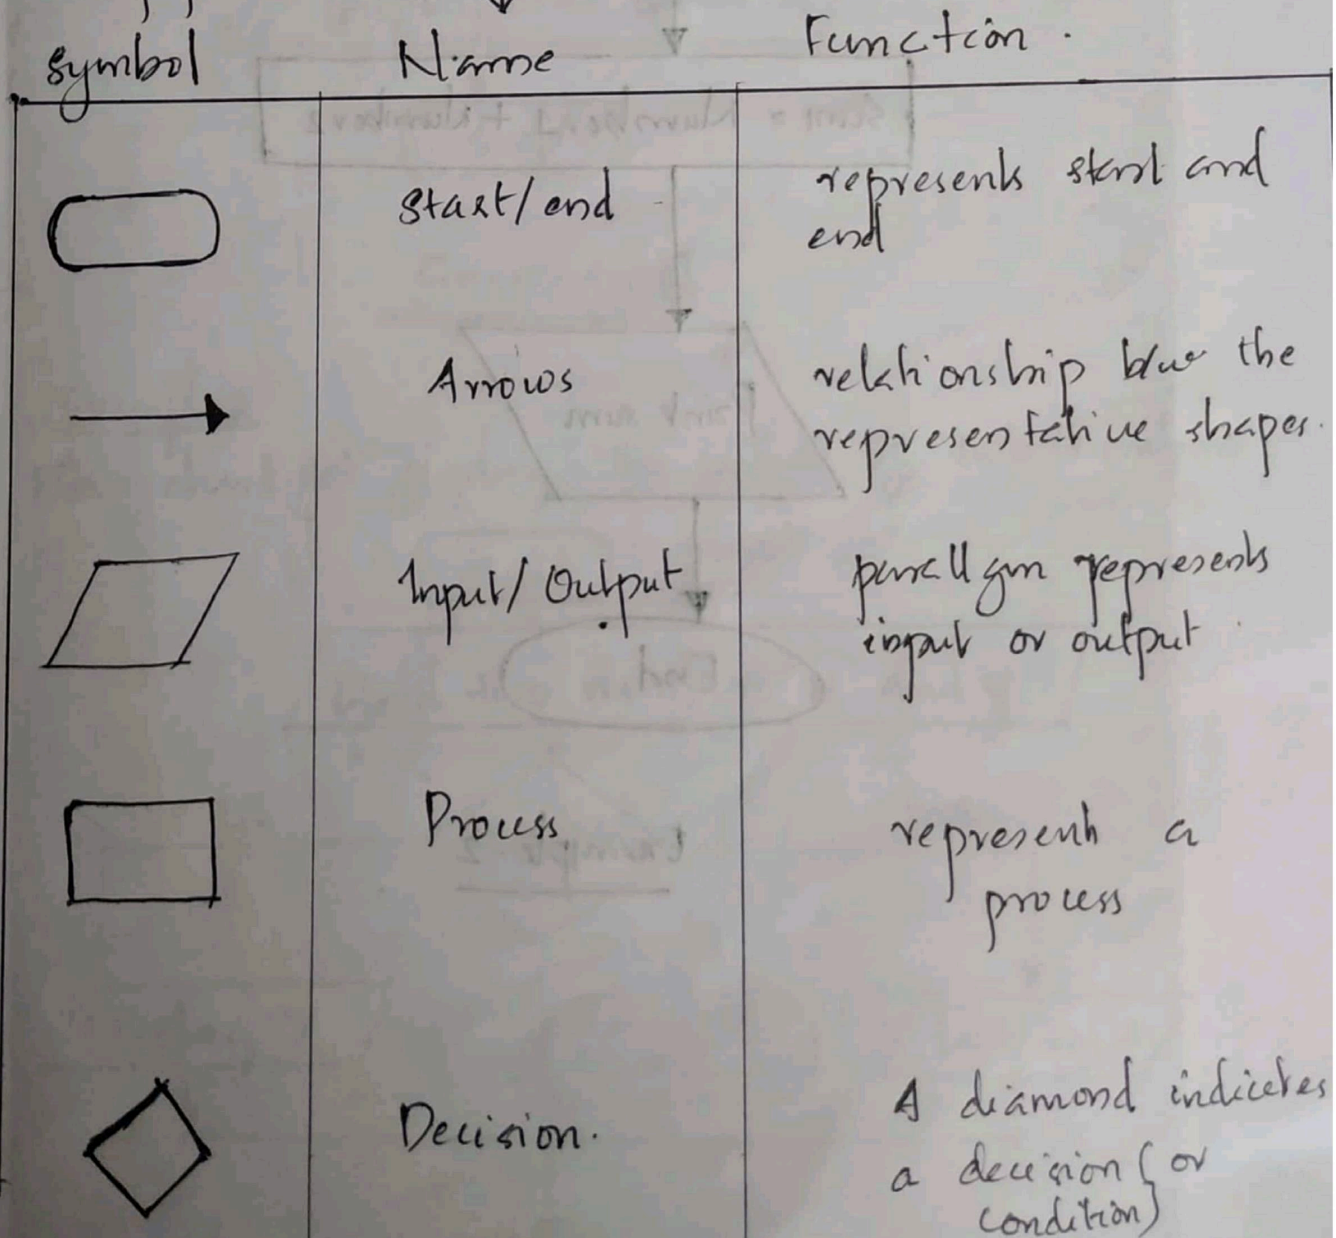 symbol Name Function.
start/end represents start and
end
Arrows relationship b/w the
representative shapes.
Input/Output parallgm represents
input or output
Process represents a
process
Decision. A diamond indicates
a decision (or
condition)